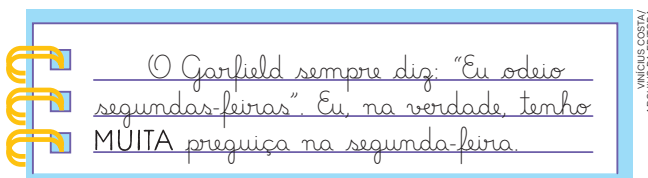 O Garfield sempre diz: “Eu odeio
segundas-feiras”. Eu, na verdade, tenho
MUITA preguiça na segunda-feira.
VINÍCIUS COSTA/